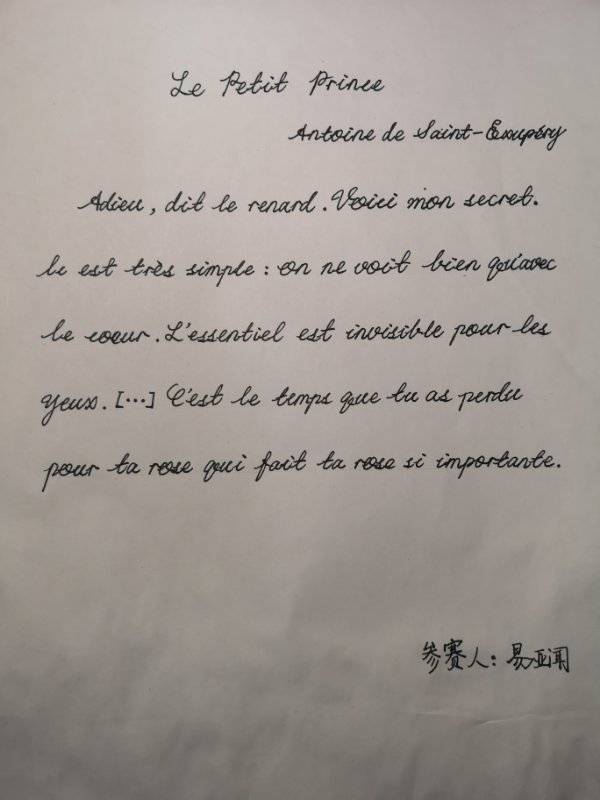 Le Petit Prince
Antoine de Saint-Exupéry
Adieu, dit le renard. Voici mon secret.
Il est très simple : on ne voit bien qu'avec
le coeur. L'essentiel est invisible pour les
yeux. [···] C'est le temps que tu as perdu
pour ta rose qui fait ta rose si importante.
参赛人：易亚闻